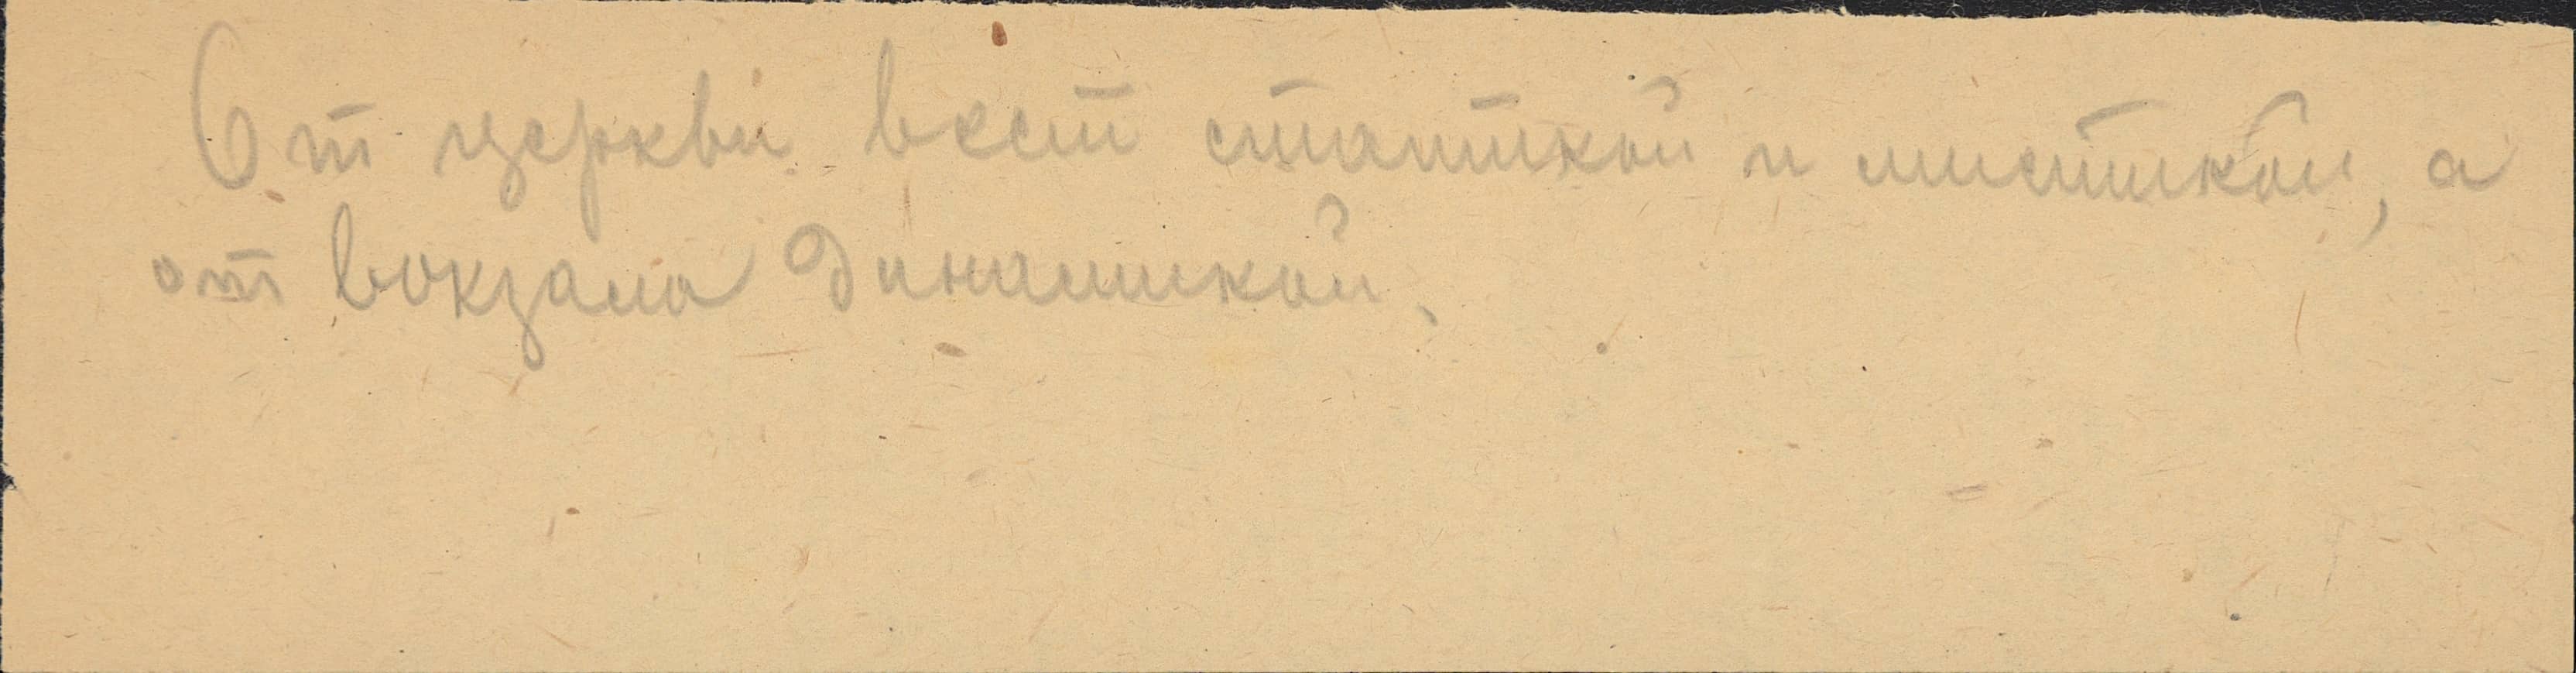 От церкви веет статикой и мистикой, а
от вокзала динамикой.